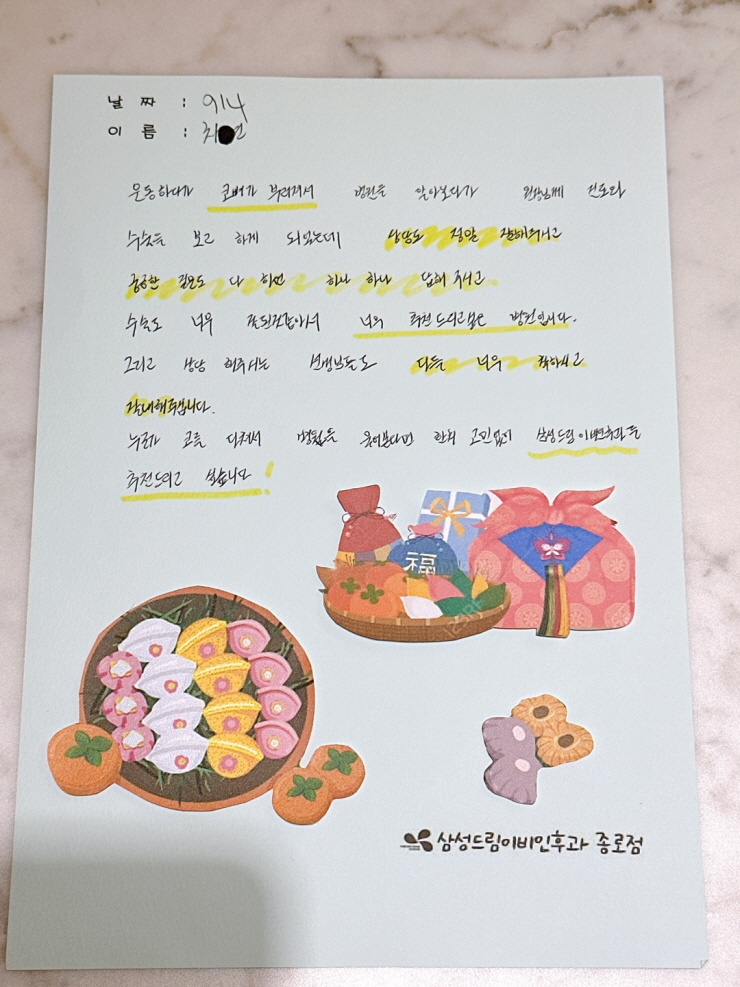 날 짜 : 9/4
이 름 : 최
운동하다가 코뼈가 부러져서 병원을 알아보다가 원장님께 진료와
수술을 보고 하게 되었는데 상담도 정말 잘해주시고
궁금한 질문도 다 하면 하나 하나 답해 주시고
수술도 너무 잘된것같아서 너무 추천드리고싶은 병원입니다.
그리고 상담 해주시는 선생님들도 다들 너무 착하시고
잘해주십니다.
누군가 코를 다쳐서 병원을 물어본다면 한치 고민없이 삼성드림이비인후과를
추천드리고 싶습니다!
福
123RF
삼성드림이비인후과 종로점